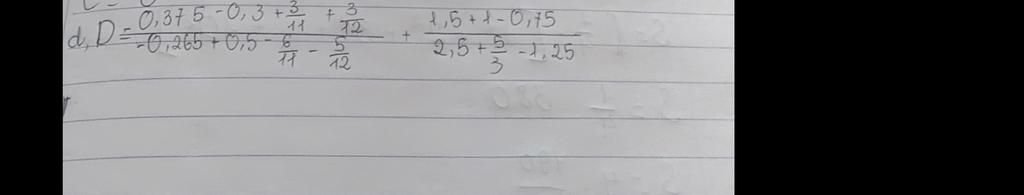 d, D = \frac{0,375 - 0,3 + \frac{3}{11} + \frac{3}{12}}{-0,265 + 0,5 - \frac{6}{11} - \frac{5}{12}} + \frac{1,5 + 1 - 0,75}{2,5 + \frac{5}{3} - 1,25}